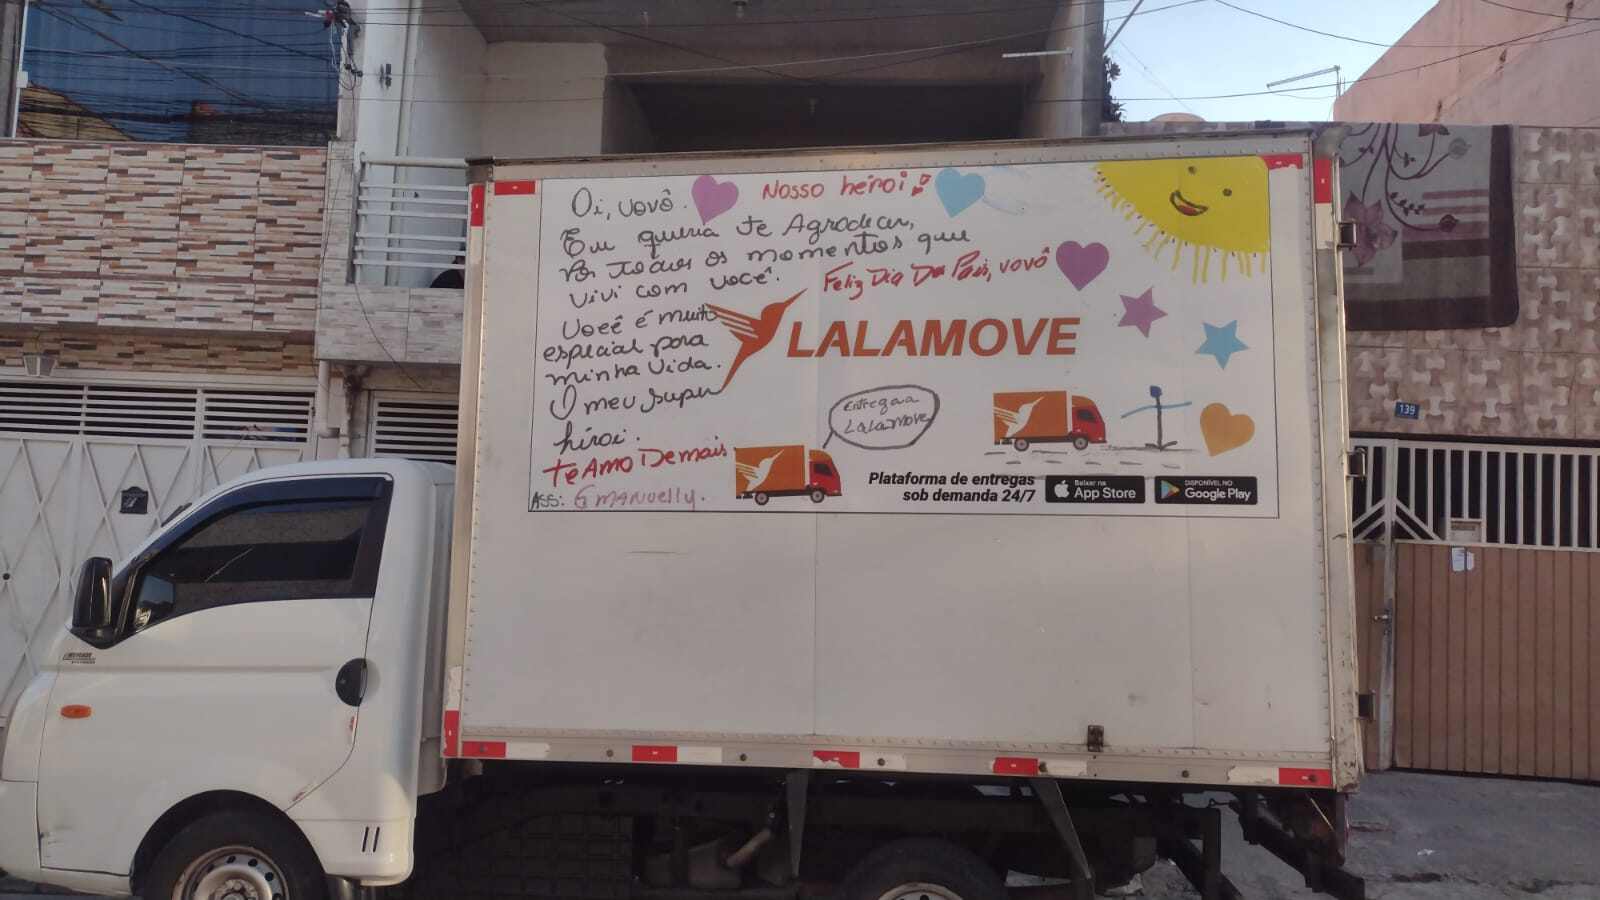 Oi, vovô.
Nosso héroi
Eu queria te Agradecer,
Por todos os momentos que
vivi com você.
Feliz Dia Dos Pais, vovô
Você é muito
especial para
minha vida.
O meu super
héroi.
te Amo Demais
Ass: Emanuelly.
LALAMOVE
Entrega a
Lalamove
Plataforma de entregas
sob demanda 24/7
Baixar na
App Store
DISPONÍVEL NO
Google Play
139